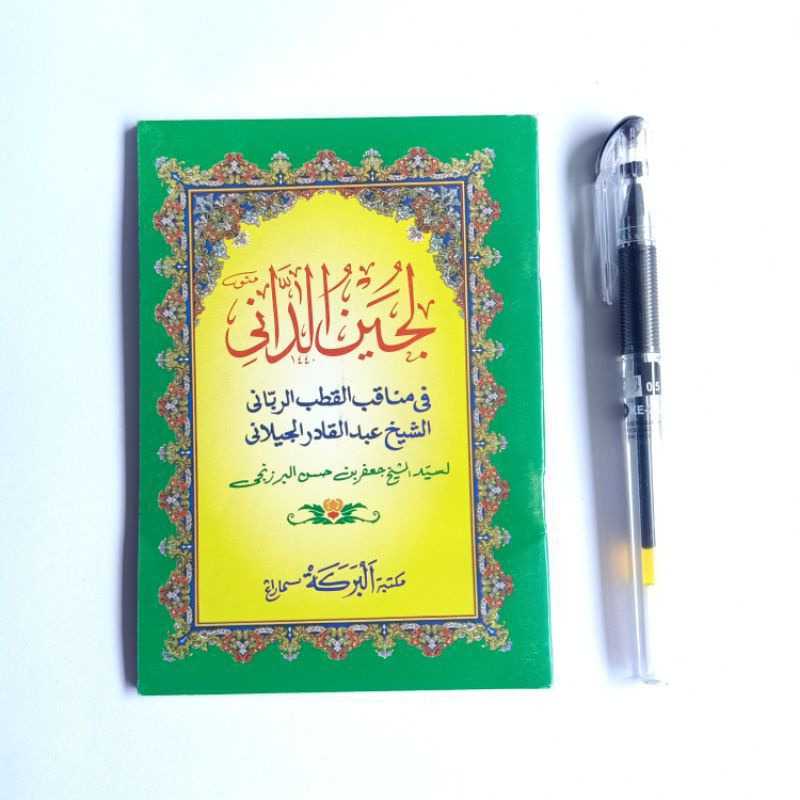 لُجَيْنُ الدَّانِي
١٤٤٠
فى مناقب القطب الربّانى
الشيخ عبد القادر الجيلانى
لسيّد الشيخ جعفر بن حسن البرزنجى
مكتبة الْبَرَكَةْ سماراڠ
0.5